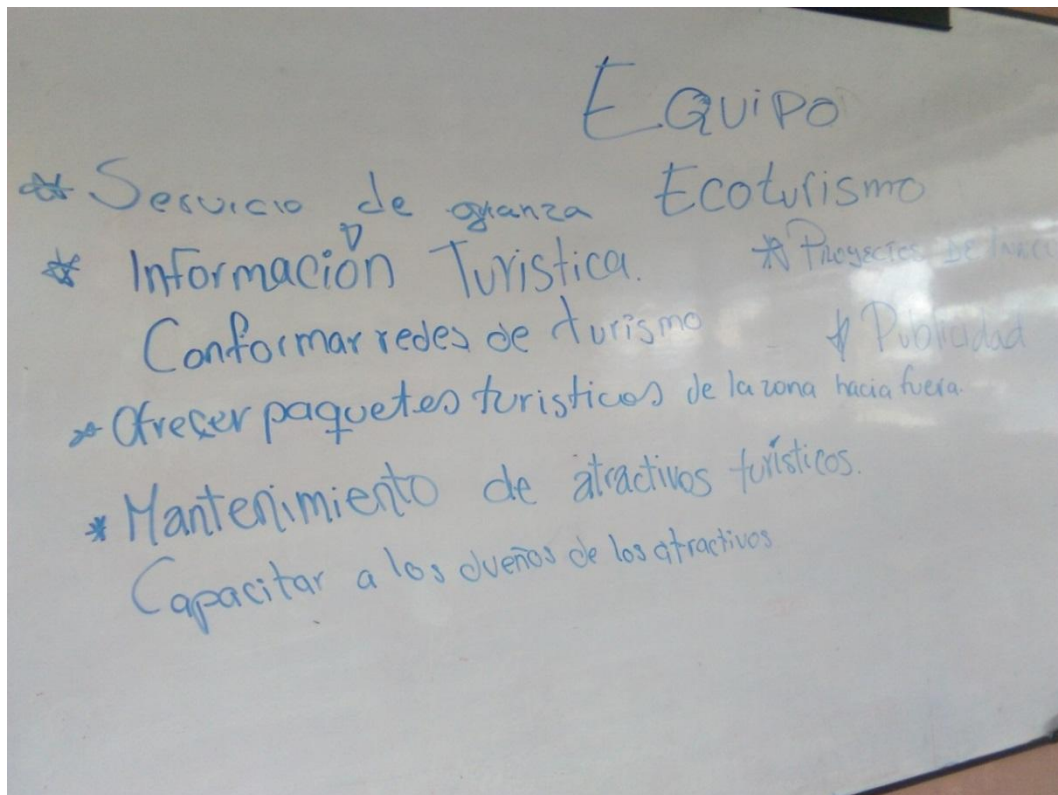 EQUIPO
Ecoturismo
* Servicio de granza
* Información Turistica.
* Proyectos De
Conformar redes de turismo
* Publicidad
* Ofrecer paquetes turisticos de la zona hacia fuera.
* Mantenimiento de atractivos turísticos.
Capacitar a los dueños de los atractivos